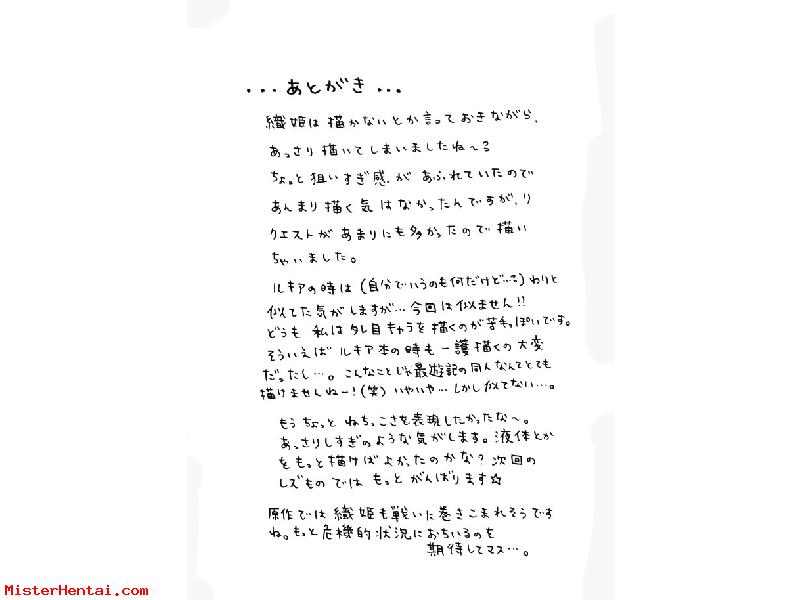 ・・・あとがき・・・
織姫は描かないとか言っておきながら、
あっさり描いてしまいましたね～る
ちょっと狙いすぎ感があふれていたので
あんまり描く気はなかったんですが、リ
クエストがあまりにも多かったので描い
ちゃいました。
ルキアの時は(自分でいうのも何だけど…る)わりと
似てた気がしますが…今回は似ません!!
どうも私はタレ目キャラを描くのが苦手っぽいです。
そういえばルキア本の時も一護描くの大変
だったし…。こんなことじゃ最遊記の同人なんてとても
描けませんねー!(笑)いやいや…しかし似てない…。
もうちょっとねちっこさを表現したかったな～。
あっさりしすぎのような気がします。液体とか
をもっと描けばよかったのかな?次回の
レズものではもっとがんばります☆
原作では織姫も戦いに巻きこまれそうです
ね。もっと危機的状況におちいるのを
期待してマス…。
MisterHentai.com